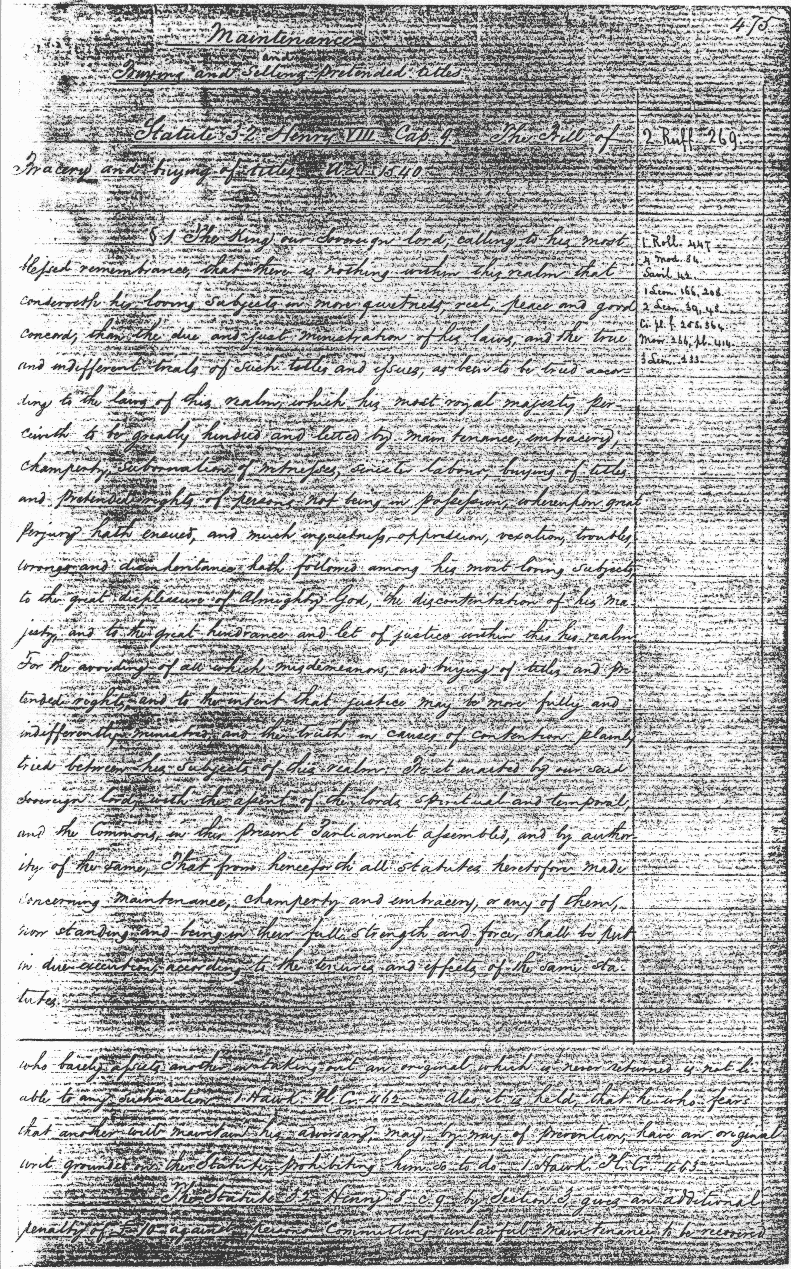 475
Maintenance
and
Buying and Selling pretended titles
Statute 32 Henry VIII Cap. 9. The Bill of
2 Ruff. 269.
Bracery and buying of titles A.D. 1540
§ 1 The King our Sovereign lord, calling to his most
blessed remembrance, that there is nothing within this realm that
conserveth his loving Subjects in more quietness, rest, peace and good
concord, than the due and just ministration of his laws, and the true
and indifferent trials of such titles and issues, as been to be tried accor-
ding to the laws of this realm, which his most royal majesty per-
ceiveth to be greatly hindred and letted by maintenance, embracery,
champerty, subornation of witnesses, sinister labour, buying of titles
and pretended rights of persons not being in possession, whereupon great
perjury hath ensued, and much inquietness, oppression, vexation, troubles
wrongs and disinheritance hath followed among his most loving Subjects,
to the great displeasure of Almighty God, the discontentation of his ma-
jesty, and to the great hindrance and let of justice within this his realm
For the avoiding of all which misdemeanors, and buying of titles and pre-
tended rights, and to the intent that justice may be more fully and
indifferently ministred, and the truth in causes of contention plainly
tried between his Subjects of this realm: Be it enacted by our said
Sovereign lord, with the assent of the lords spiritual and temporal,
and the Commons, in this present Parliament assembled, and by author-
ity of the same, That from henceforth all statutes heretofore made
concerning maintenance, champerty and embracery, or any of them,
now standing and being in their full strength and force, shall be put
in due execution, according to the tenures and effects of the same sta-
tutes.
1 Roll. 447
4 Mod. 84.
Savil. 42.
1 Leon. 166, 208.
2 Leon. 39, 48.
Co. pl. f. 258. 364.
Moor. 266, pl. 414.
3 Leon. 233.
who barely assists another in taking out an original which is never returned is not li-
able to any such action. 1 Hawk. Pl. Cr. 462 Also it is held, that he who fears
that another will maintain his adversary, may, by way of prevention, have an original
writ grounded on the Statutes, prohibiting him so to do. 1 Hawk. Pl. Cr. 463
The Statute 32 Henry 8. c. 9. by Section 3 gives an additional
penalty of £10 against persons committing unlawful maintenance to be recovered